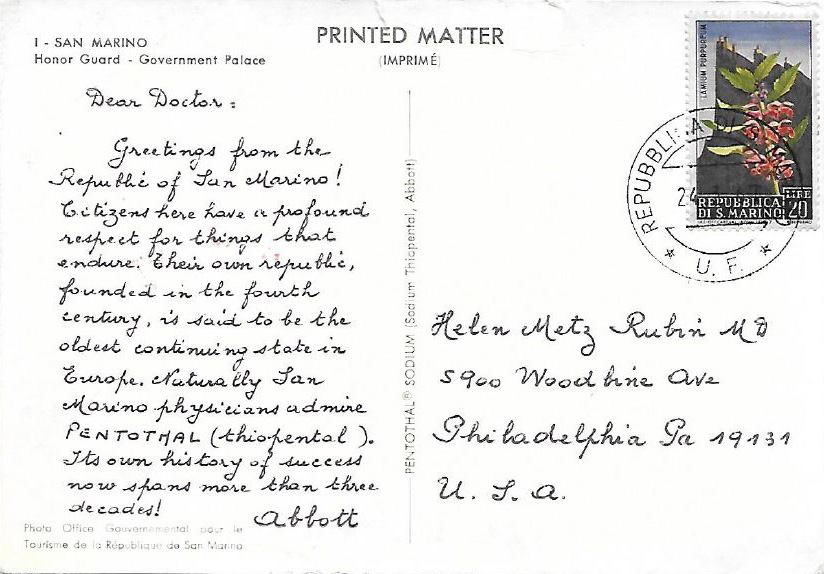 I - SAN MARINO
Honor Guard - Government Palace
PRINTED MATTER
(IMPRIMÉ)
Dear Doctor:
Greetings from the
Republic of San Marino!
Citizens here have a profound
respect for things that
endure. Their own republic,
founded in the fourth
century, is said to be the
oldest continuing state in
Europe. Naturally San
Marino physicians admire
PENTOTHAL (thiopental).
Its own history of success
now spans more than three
decades!
Abbott
Photo Office Gouvernemental pour le
Tourisme de la République de San Marino
PENTOTHAL® SODIUM (Sodium Thiopental, Abbott)
LAMIUM PURPUREUM
LIRE
20
REPUBBLICA
DI S. MARINO
REPUBBLICA DI S.
24
U. F.
Helen Metz Rubin MD
5900 Woodbine Ave
Philadelphia Pa 19131
U. S. A.